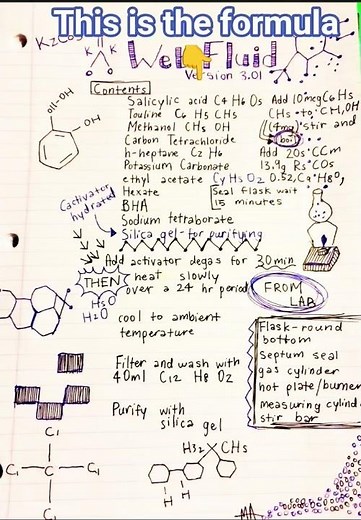 This is the formula
K2CO3
K K
Wet Fluid
Version 3.01
Contents
Oll-OH
OH
Salicylic acid C4 H6 Os Add 10mcg C6 Hs
Touline C6 H5 CHs CHs to CH3OH
Methanol CHs OH (4mg) stir and
Carbon Tetrachloride boil
h-heptane C2 H6 Add 20s CCm
Potassium Carbonate 13.9g Rs CO3
ethyl acetate Cy Hs O2 0.52, Ca H8O,
Hexate Seal flask wait
15 minutes
BHA
Sodium tetraborate
Silica gel for purifying
Cactivator
hydrated
Add activator degas for 30 min
THEN heat slowly
over a 24 hr period
FROM
LAB
H50
H2O
cool to ambient
temperature
Flask-round
bottom
Septum seal
gas cylinder
hot plate/burner
measuring cylind
stir bar
Filter and wash with
40ml C12 H8 O2
Purify with
silica gel
C1
C1 C C1
C1
H32 CHs
H H
MA